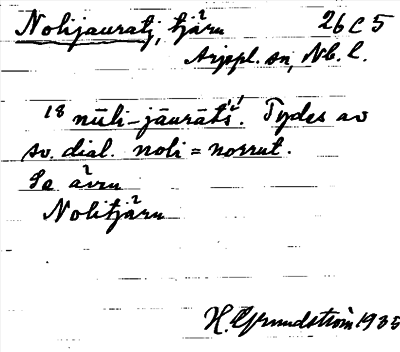 Nolijauratj, tjärn 26 C 5
Arjepl. sn, Nb. l.
18 nūli-jāurāt́ś. Tydes av
sv. dial. noli = norrut.
Se även
Nolitjärn
H. Grundström 1935